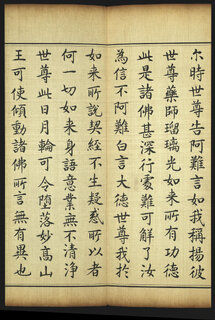 尒時世尊告阿難言如我稱揚彼
世尊藥師瑠璃光如来所有功德
此是諸佛甚深行處難可解了汝
為信不阿難白言大德世尊我於
如来所說契經不生疑惑所以者
何一切如来身語意業無不清淨
世尊此日月輪可令墮落妙高山
王可使傾動諸佛所言無有異也